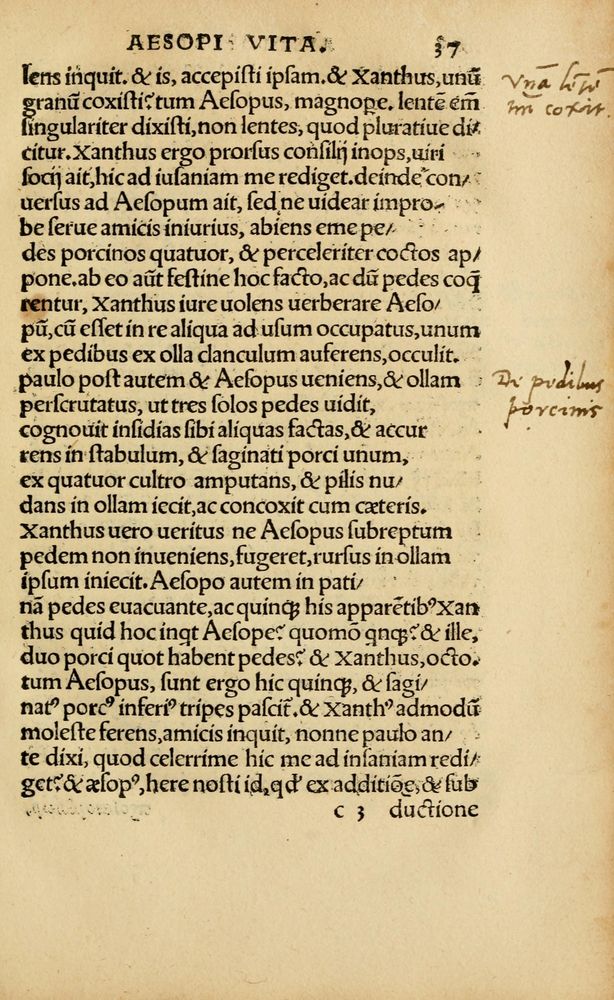 AESOPI VITA. 37
lens inquit. & is, accepisti ipsam. & Xanthus, unũ
granũ coxisti? tum Aesopus, magnope. lentẽ em̃
singulariter dixisti, non lentes, quod pluratiue di/
citur. Xanthus ergo prorsus consilij inops, uiri
socij ait, hic ad iusaniam me rediget. deinde con/
uersus ad Aesopum ait, sed ne uidear impro/
be serue amicis iniurius, abiens eme pe/
des porcinos quatuor, & perceleriter coctos ap/
pone. ab eo aũt festine hoc facto, ac dũ pedes coq̃
rentur, Xanthus iure uolens uerberare Aeso/
pũ, cũ esset in re aliqua ad usum occupatus, unum
ex pedibus ex olla clanculum auferens, occulit.
paulo post autem & Aesopus ueniens, & ollam
perscrutatus, ut tres solos pedes uidit,
cognouit insidias sibi aliquas factas, & accur
rens in stabulum, & saginati porci unum,
ex quatuor cultro amputans, & pilis nu/
dans in ollam iecit, ac concoxit cum cæteris.
Xanthus uero ueritus ne Aesopus subreptum
pedem non inueniens, fugeret, rursus in ollam
ipsum iniecit. Aesopo autem in pati/
nã pedes euacuante, ac quinqꝫ his apparẽtibꝰ Xan
thus quid hoc inq̃t Aesope? quomõ qnqꝫ? & ille,
duo porci quot habent pedes? & Xanthus, octo.
tum Aesopus, sunt ergo hic quinqꝫ, & sagi/
natꝰ porcꝰ inferiꝰ tripes pascit̃. & Xanthꝰ admodũ
moleste ferens, amicis inquit, nonne paulo an/
te dixi, quod celerrime hic me ad insaniam redi/
get? & æsopꝰ, here nosti id, qd' ex additiõe, & sub
c 3 ductione
Vnã lẽtẽ
coxit.
De pedibus
porcinis